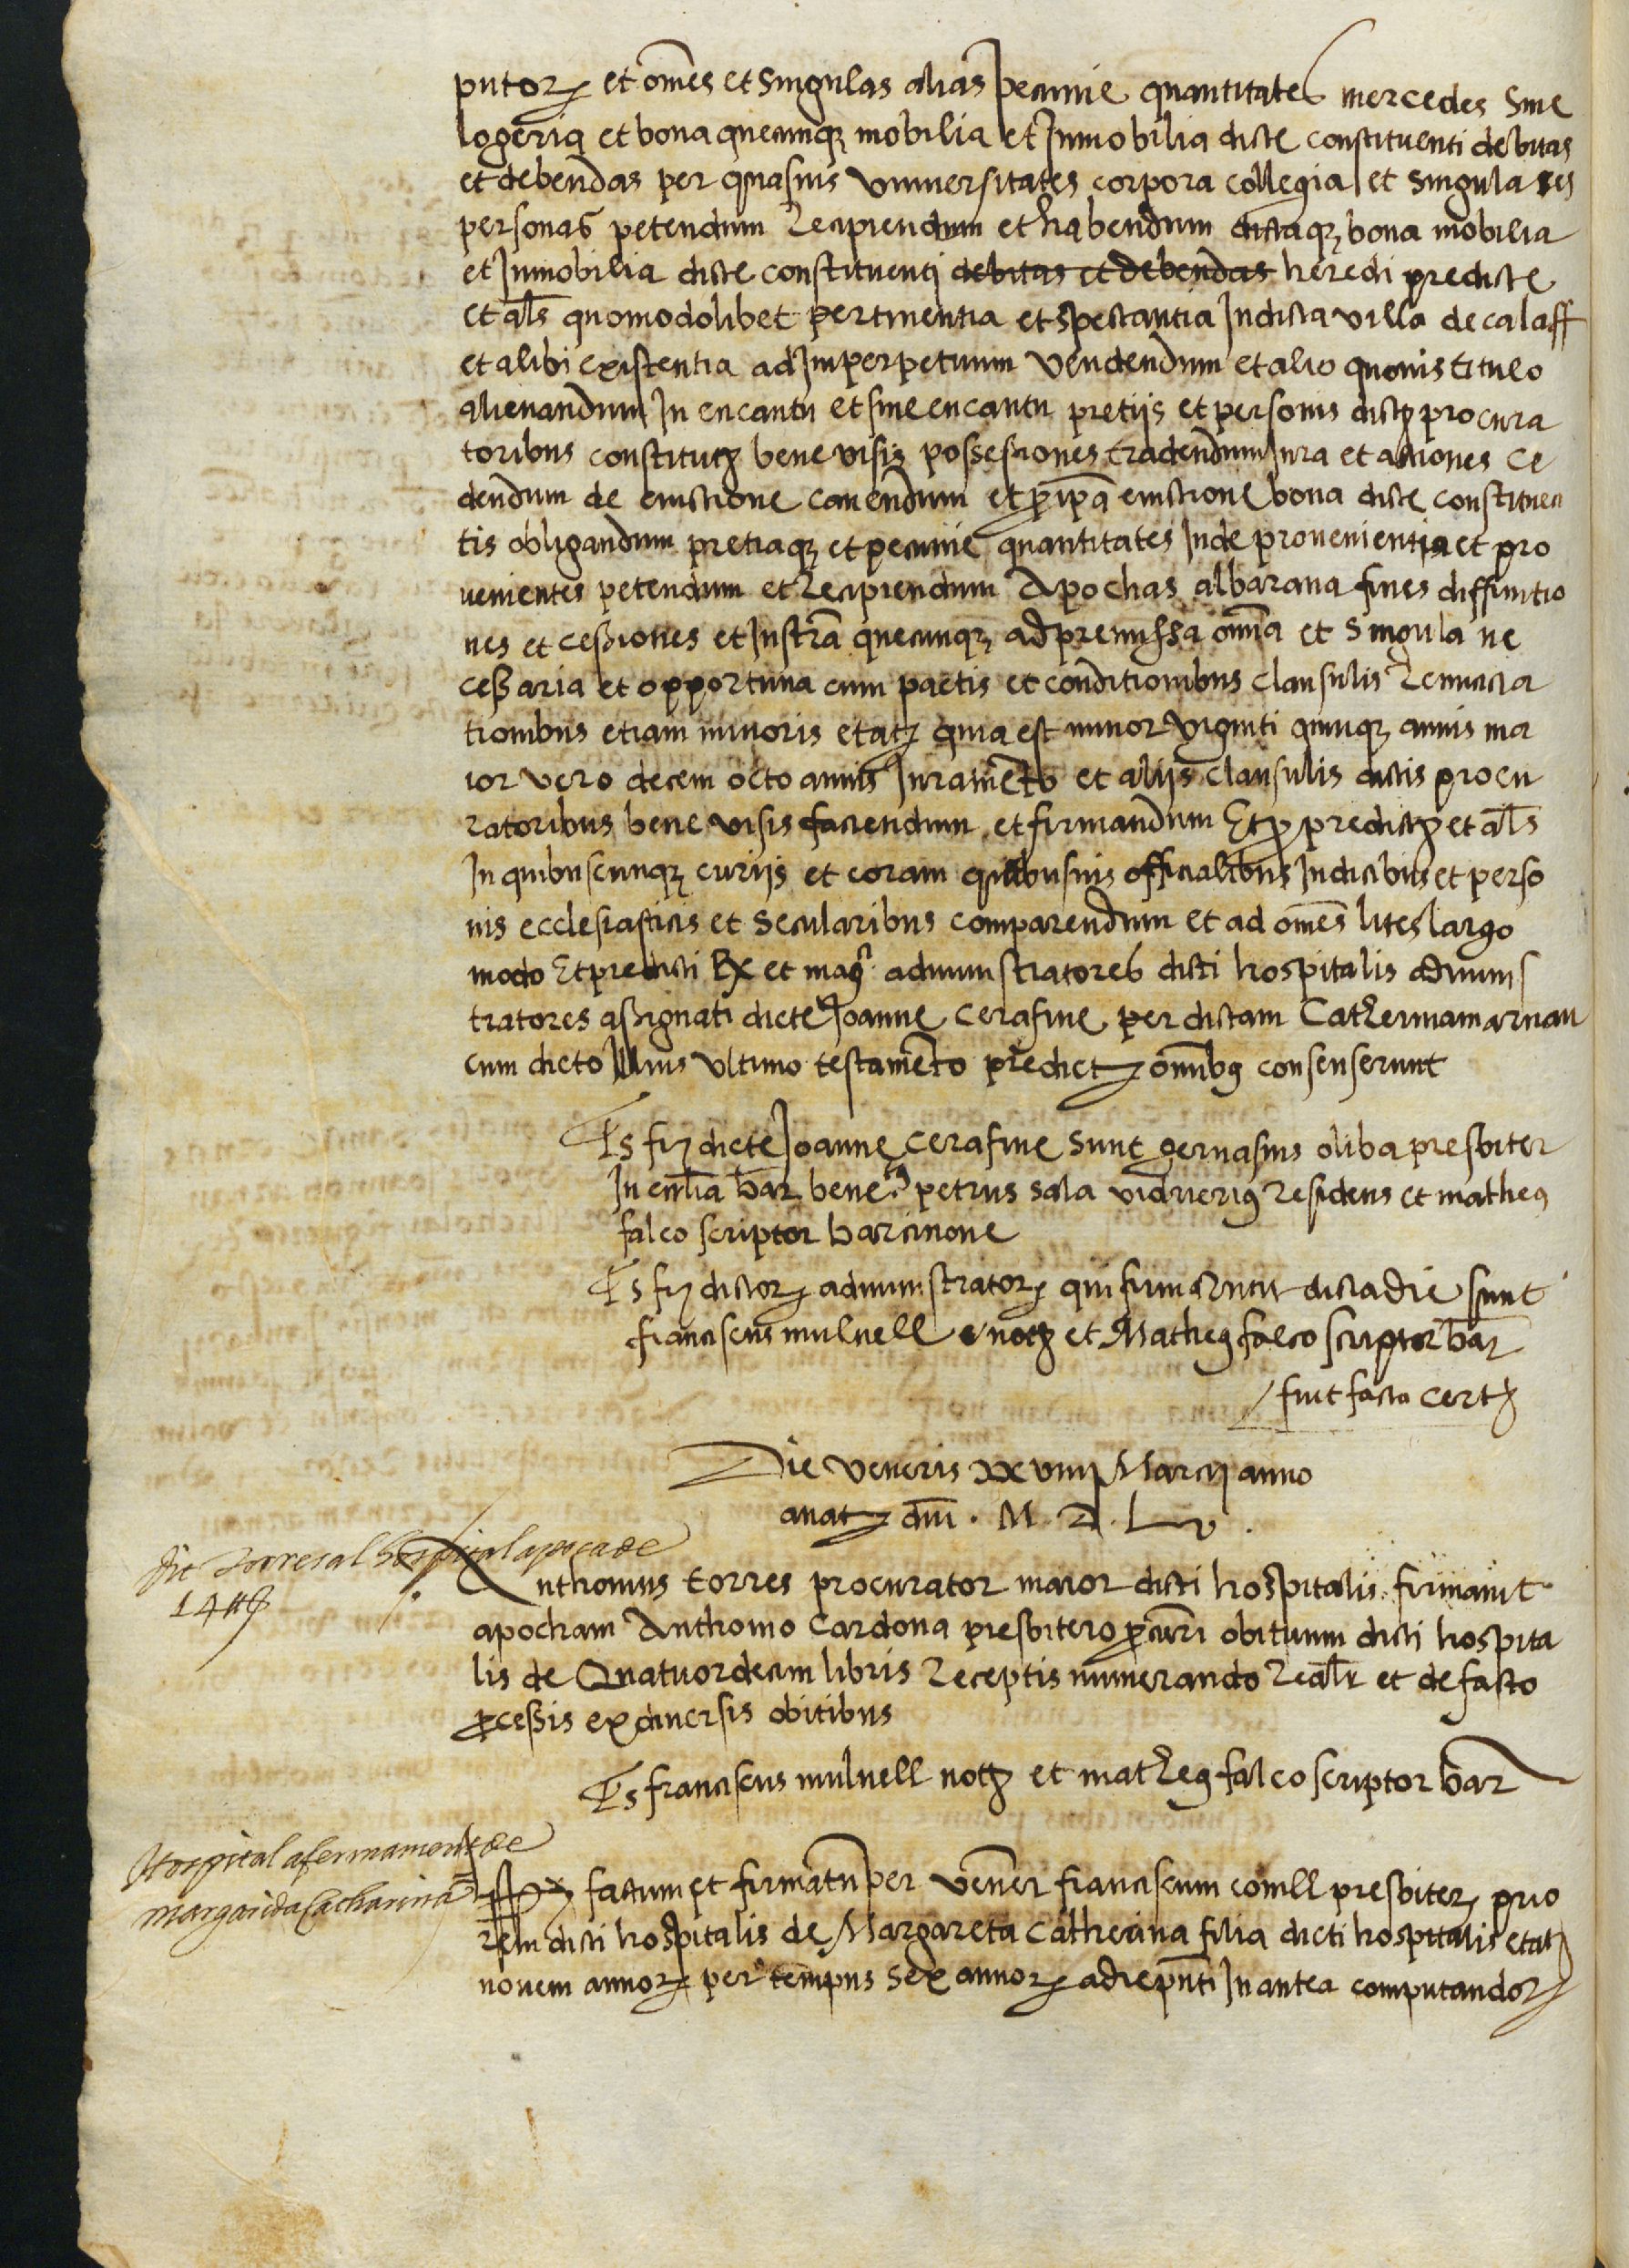 putorꝝ et om̄es et singulas alias pecunie quantitates mercedes sive
logeria et bona quecunqꝫ mobilia et Inmobilia dicte constituenti debitas
et debendas per quasuis vniuersitates corpora collegia et singulares
personas petendum Recipiendum et habendum dictaqꝫ bona mobilia
et Inmobilia dicte constituenti debitas et debendas heredi predicte
et al̄s quomodolibet pertinentia et spectantia In dicta villa de calaff
et alibi existentia ad Imperpetuum vendendum et alio quouis titulo
alienandum In encantu et sine encantu pretijs et personis dictꝭ procura
toribus constitutꝭ bene visis possessiones tradendum Jura et actiones ce
dendum de euictione cauendum et ꝓ ip̄a euictione bona dicte constituen
tis obligandum pretiaqꝫ et pecunie quantitates Inde prouenientia et pro
uenientes petendum et Recipiendum Apochas albarana fines diffinitio
nes et cessiones et Instr̄a quecunqꝫ ad premissa om̄ia et singula ne
cessaria et opportuna cum pactis et conditionibus clausulis Renuncia
tionibus etiam minoris etatꝭ quia est minor viginti quinqꝫ annis ma
ior vero decem octo annis Juramēto et alijs clausulis dictis procu
ratoribus bene visis faciendum et firmandum Et ꝓ predictꝭ et al̄s
In quibuscunqꝫ curijs et coram quibusuis officialibus Judicibus et perso
nis ecclesiasticis et secularibus comparendum et ad om̄es lites largo
modo Et predicti Rx et mag̃ administratores dicti hospitalis adminis
tratores assignati dicte Joanne Cerafine per dictam Catherinam arnau
cum dicto Illius vltimo testamēto predictꝭ om̄ibꝰ consenserunt
Ts fiꝫ dicte Joanne Cerafine sunt geruasius oliba presbiter
In ecc̄lia bar̄ beneᵗꝰ petrus sala vidrieriꝰ Residens et matheꝰ
falco scriptor barcinone
Ts fiꝫ dictorꝝ administratorꝝ qui firmarunt dicta die sunt
franciscus mulnell notꝭ et Matheꝰ falco scriptor bar̄
fuit facta certꝭ
Die veneris xxviiij Marcij anno
a natꝭ dn̄i . M . D . Lv .
fit Torres al hospital apoca de
14 ll
Anthonius torres procurator maior dicti hospitalis firmauit
apocham Anthonio Cardona presbitero ꝓcur̄i obituum dicti hospita
lis de Quatuordecim libris Receptis numerando Real̄r et de facto
ꝓcessis ex diuersis obitibus
Ts franciscus mulnell notꝭ et matheꝰ falco scriptor bar̄
Hospital afermament de
margarida Catharina
factum et firmatū per vener̄ franciscum comell presbiterꝝ prio
rem dicti hospitalis de Margareta Catherina filia dicti hospitalis etatꝭ
nouem annorꝝ per tempus sex annorꝝ a die p̄nti In antea computandorꝝ